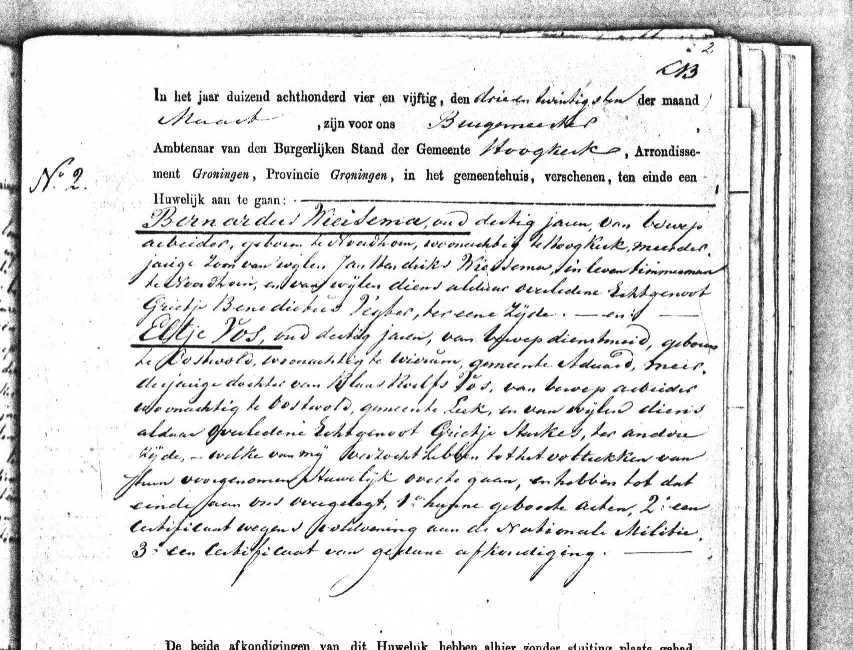 2
In het jaar duizend achthonderd vier en vijftig, den drie en twintigsten der maand
Maart , zijn voor ons Burgemeester ,
Ambtenaar van den Burgerlijken Stand der Gemeente Hoogkerk , Arrondisse-
N.o 2. ment Groningen, Provincie Groningen, in het gemeentehuis, verschenen, ten einde een
Huwelijk aan te gaan:
Bernardus Wiersema, oud dertig jaren, van beroep
arbeider, geboren te Noordhorn, woonachtig te Hoogkerk, meerder,
jarige Zoon van wijlen Jan Hendriks Wiersema, in leven timmerman
te Noordhorn, en van wijlen diens aldaar overledene Echtgenoot
Grietje Benedictus , ter eene Zijde. — en:
Eltje Vos, oud dertig jaren, van beroep dienstmeid, geboren
te Oostwold, woonachtig te Wierum, gemeente Aduard, meer,
derjarige dochter van Klaas Roelfs Vos, van beroep arbeider
woonachtig te Oostwold, gemeente Leek, en van wijlen diens
aldaar overledene Echtgenoot Grietje , ter andere
Zijde, — welke van mij verzocht hebben tot het voltrekken van
hun voorgenomen Huwelijk over te gaan, en hebben tot dat
einde aan ons overgelegd, 1o hunne geboorte acten, 2o een
Certificaat wegens voldoening aan de Nationale Militie,
3o een Certificaat van gedane afkondiging.
De beide afkondigingen van dit Huwelijk hebben alhier zonder stuiting plaats gehad